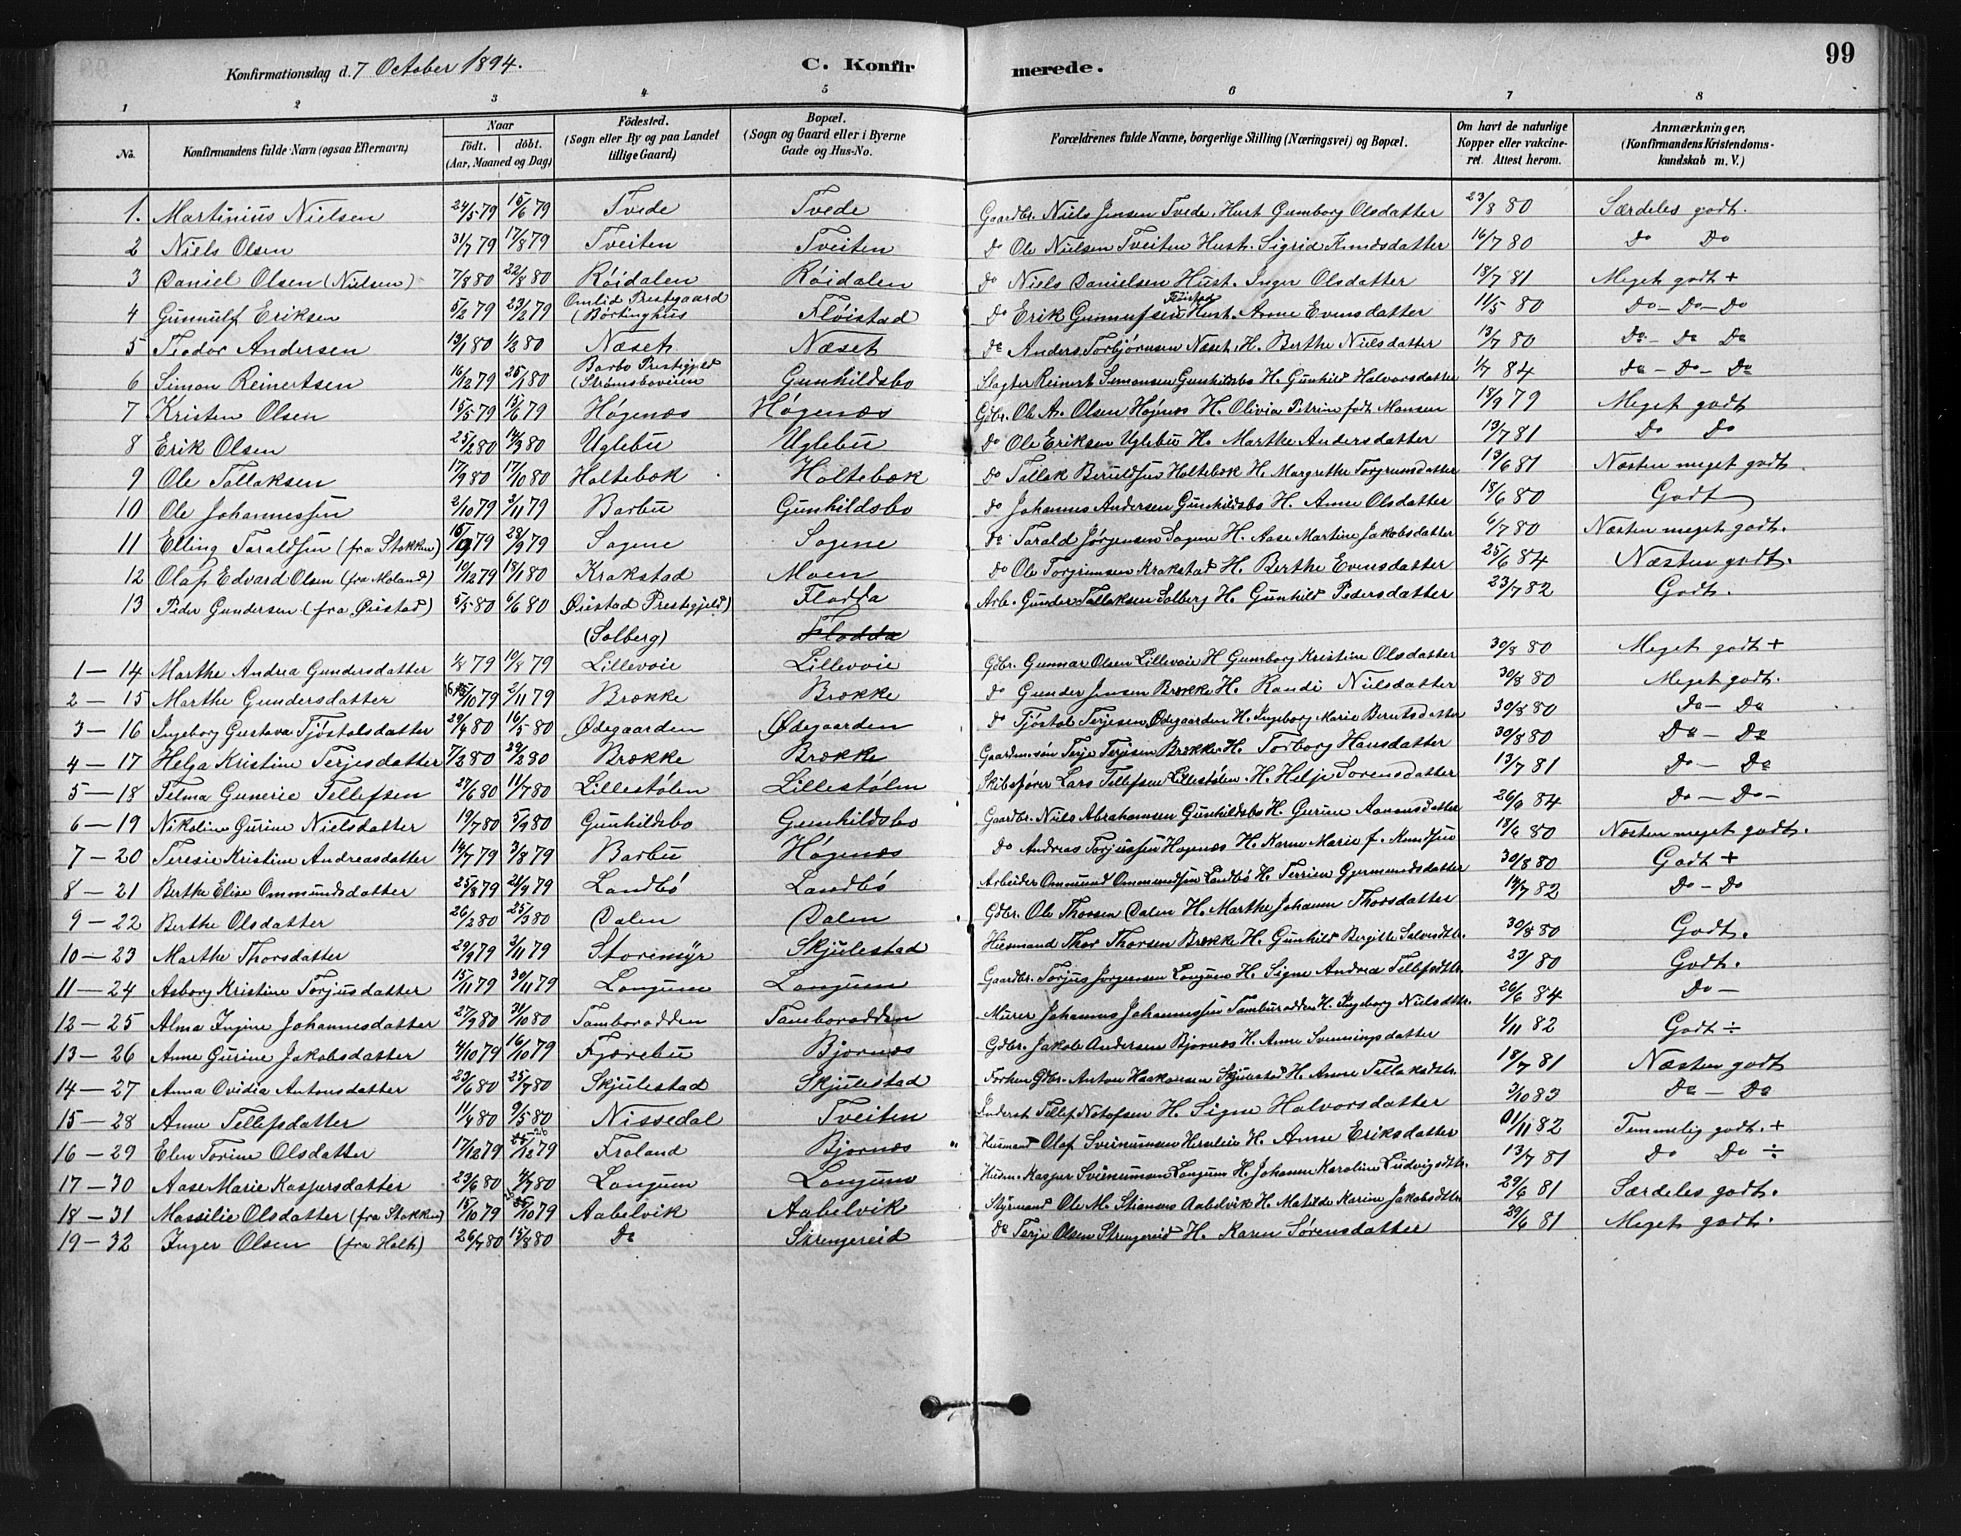 Konfirmationsdag d. 7 October 1894. C. Konfirmerede. 99
1 2 3 4 5 6 7 8
No. Konfirmandens fulde Navn (ogsaa Efternavn) Naar födt. döbt. (Aar, Maaned og Dag) Födested. (Sogn eller By og paa Landet tillige Gaard) Bopæl. (Sogn og Gaard eller i Byerne Gade og Hus-No. Forældrenes fulde Navne, borgerlige Stilling (Næringsvei) og Bopæl. Om havt de naturlige Kopper eller vakcineret. Attest herom. Anmærkninger. (Konfirmandens Kristendomskundskab m. V.)
1. Martinius Nielsen 24/5 79 15/6 79 Tvede Tvede Gaardbr. Niels Jensen Tvede. Hust. Gumborg Olsdatter 23/8 80 Særdeles godt.
2 Niels Olsen 31/7 79 17/8 79 Tveiten Tveiten Do Ole Nielsen Tveiten Hust. Sigrid Knudsdatter 16/7 80 Do Do
3 Daniel Olsen (Nielsen) 7/8 80 22/8 80 Røidalen Røidalen Do Niels Danielsen Hust. Inger Olsdatter 18/7 81 Meget godt +
4 Gunnulf Eriksen 5/2 79 23/2 79 Omlid Prestgaard (Børtinghus Fløistad Do Erik Gunnufsen Fløistad Hust. Anne Evensdatter 11/5 80 Do – Do – Do
5 Teodor Andersen 13/1 80 1/2 80 Næset Næset Do Anders Torbjørnsen Næset. H. Berthe Nielsdatter 13/7 80 Do – Do Do
6 Simon Reinertsen 16/12 79 25/1 80 Barbo Prestigjeld (Strømsboveien Gunhildsbo Slagter Reinert Simonsen Gunhildsbo H. Gunhild Halvorsdatter 1/7 84 Do – Do – Do
7 Kristen Olsen 15/5 79 15/6 79 Høgenæs Høgenæs Gdbr. Ole A. Olsen Høgnæs H. Olivia Petrine født Monsen 18/9 79 Meget godt
8 Erik Olsen 25/2 80 14/3 80 Uglebu Uglebu Do Ole Eriksen Uglebu H. Marthe Andersdatter 13/7 81 Do Do
9 Ole Tallaksen 17/9 80 17/10 80 Holtebæk Holtebæk Do Tallak Beruldsen Holtebæk H. Margrethe Torgrimsdatter 13/6 81 Næsten meget godt.
10 Ole Johannessen 2/10 79 2/11 79 Barbu Gunhildsbo Do Johannes Andersen Gunhildsbo H. Anne Olsdatter 18/6 80 Godt
11 Elling Taraldsen (fra Stokken) 79 28/9 79 Sagene Sagene Do Tarald Jørgensen Sagene H. Aase Martine Jakobsdatter 6/7 80 Næsten meget godt.
12 Olaf Edvard Olsen (fra Moland) 10/12 79 18/1 80 Krakstad Moen Do Ole Torgrimsen Krakstad H. Berthe Evensdatter 25/6 84 Næsten godt.
13 Peder Gundersen (fra Øiestad) 5/5 80 6/6 80 Øiestad Prestigjeld) Flodda Arb. Gunder Tallaksen Solberg H. Gunhild Pedersdatter 23/7 82 Godt.
(Solberg) Flodda
1 – 14 Marthe Andrea Gundersdatter 1/8 79 10/8 79 Lillevoie Lillevoie Gdbr. Gunnar Olsen Lillevoie H Gumborg Kristine Olsdatter 30/8 80 Meget godt +
2 – 15 Marthe Gundersdatter /10 79 2/11 79 Brække Brække Do Gunder Jensen Brække H. Randi Nielsdatter 30/8 80 Meget godt.
3 – 16 Ingeborg Gustava Tjøstolsdatter 29/4 80 16/5 80 Ødegaarden Ødegaarden Do Tjøstol Terjesen Ødegaarden H. Ingeborg Marie Berntsdatter 30/8 80 Do – Do
4 – 17 Helga Kristine Terjesdatter 7/2 80 29/2 80 Brække Brække Gaardmsøn Terje Terjesen Brække H. Torborg Hansdatter 30/8 80 Do – Do
5 – 18 Telma Gunerie Tellefsen 27/6 80 11/7 80 Lillestølen Lillestølen Skibsfører Lars Tellefsen Lillestølen. H. Helje Sorensdatter 13/7 81 Do – Do
6 – 19 Nikoline Gurine Nielsdatter 19/7 80 5/9 80 Gunhildsbo Gunhildsbo Gaardbr. Niels Abrahamsen Gunhildsbo H. Gurine Aanonsdatter 26/6 84 Do – Do –
7 – 20 Teresie Kristine Andreasdatter 14/7 79 3/8 79 Barbu Høgenæs Do Andreas Torjussen Høgenæs H. Karen Marie f. Knudsen 18/6 80 Næsten meget godt.
8 – 21 Berthe Elise Ommundsdatter 25/8 79 21/9 79 Landbø Landbø Arbeider Ommund Ommundsen Landbø H. Terrine Gjermundsdatter 30/8 80 Godt +
9 – 22 Berthe Olsdatter 26/2 80 25/3 80 Dalen Dalen Gdbr. Ole Thorsen Dalen H. Marthe Johanne Thorsdatter 14/7 82 Do – Do
10 – 23 Marthe Thorsdatter 29/9 79 2/11 79 Storemyr Skjulestad Husmand Thor Thorsen Brække H. Gunhild Bergitte Salvesdtr. 30/8 80 Godt.
11 – 24 Asborg Kristine Torjusdatter 15/11 79 30/11 79 Longum Longum Gaardbr. Torjus Jorgensen Longum H. Signe Andrea Tellefsdtr. 80 Godt.
12 – 25 Alma Ingine Johannesdatter 27/9 80 31/10 80 Tamborodden Tamborodden Murer Johannes Johannessen Tamburodden H. Ingeborg Nielsdtr. 26/6 84 Do –
13 – 26 Anne Gurine Jakobsdatter 4/10 79 16/10 79 Fjærebu Bjornæs Gdbr. Jakob Andersen Bjornæs H. Anne Svenningsdatter 1/11 82 Godt ÷
14 – 27 Anna Ovidia Antonsdatter 23/6 80 25/7 80 Skjulestad Skjulestad Forhen Gdbr. Anton Haakonsen Skjulestad H. Anne Tellaksdtr. 18/7 81 Næsten godt
15 – 28 Anne Tellefsdatter 11/4 80 9/5 80 Nissedal Tveiten Inderst Tellef Notofsen H. Signe Halvorsdatter 3/10 83 Do – Do
16 – 29 Elen Torine Olsdatter 17/12 79 /12 79 Froland Bjornæs Husmand Olaf Sveinumsen H. Anne Eriksdatter 01/11 82 Temmelig godt. +
17 – 30 Aase Marie Kaspersdatter 23/6 80 4/7 80 Longum Longum Husm. Kasper Sveinumsen Longum H. Johanne Karoline Ludvigsdtr. 13/7 81 Do Do ÷
18 – 31 Massilie Olsdatter (fra Stokken) 15/10 79 /10 79 Aabelvik Aabelvik Styrmand Ole M. Stiansen Aabelvik H. Matilde Karine Jakobsdtr. 29/6 81 Særdeles godt.
19 – 32 Inger Olsen (fra Holt) 26/7 80 15/8 80 Do Strengereid Do Terje Olsen Strengereid H. Karen Sørensdatter 29/6 81 Meget godt.